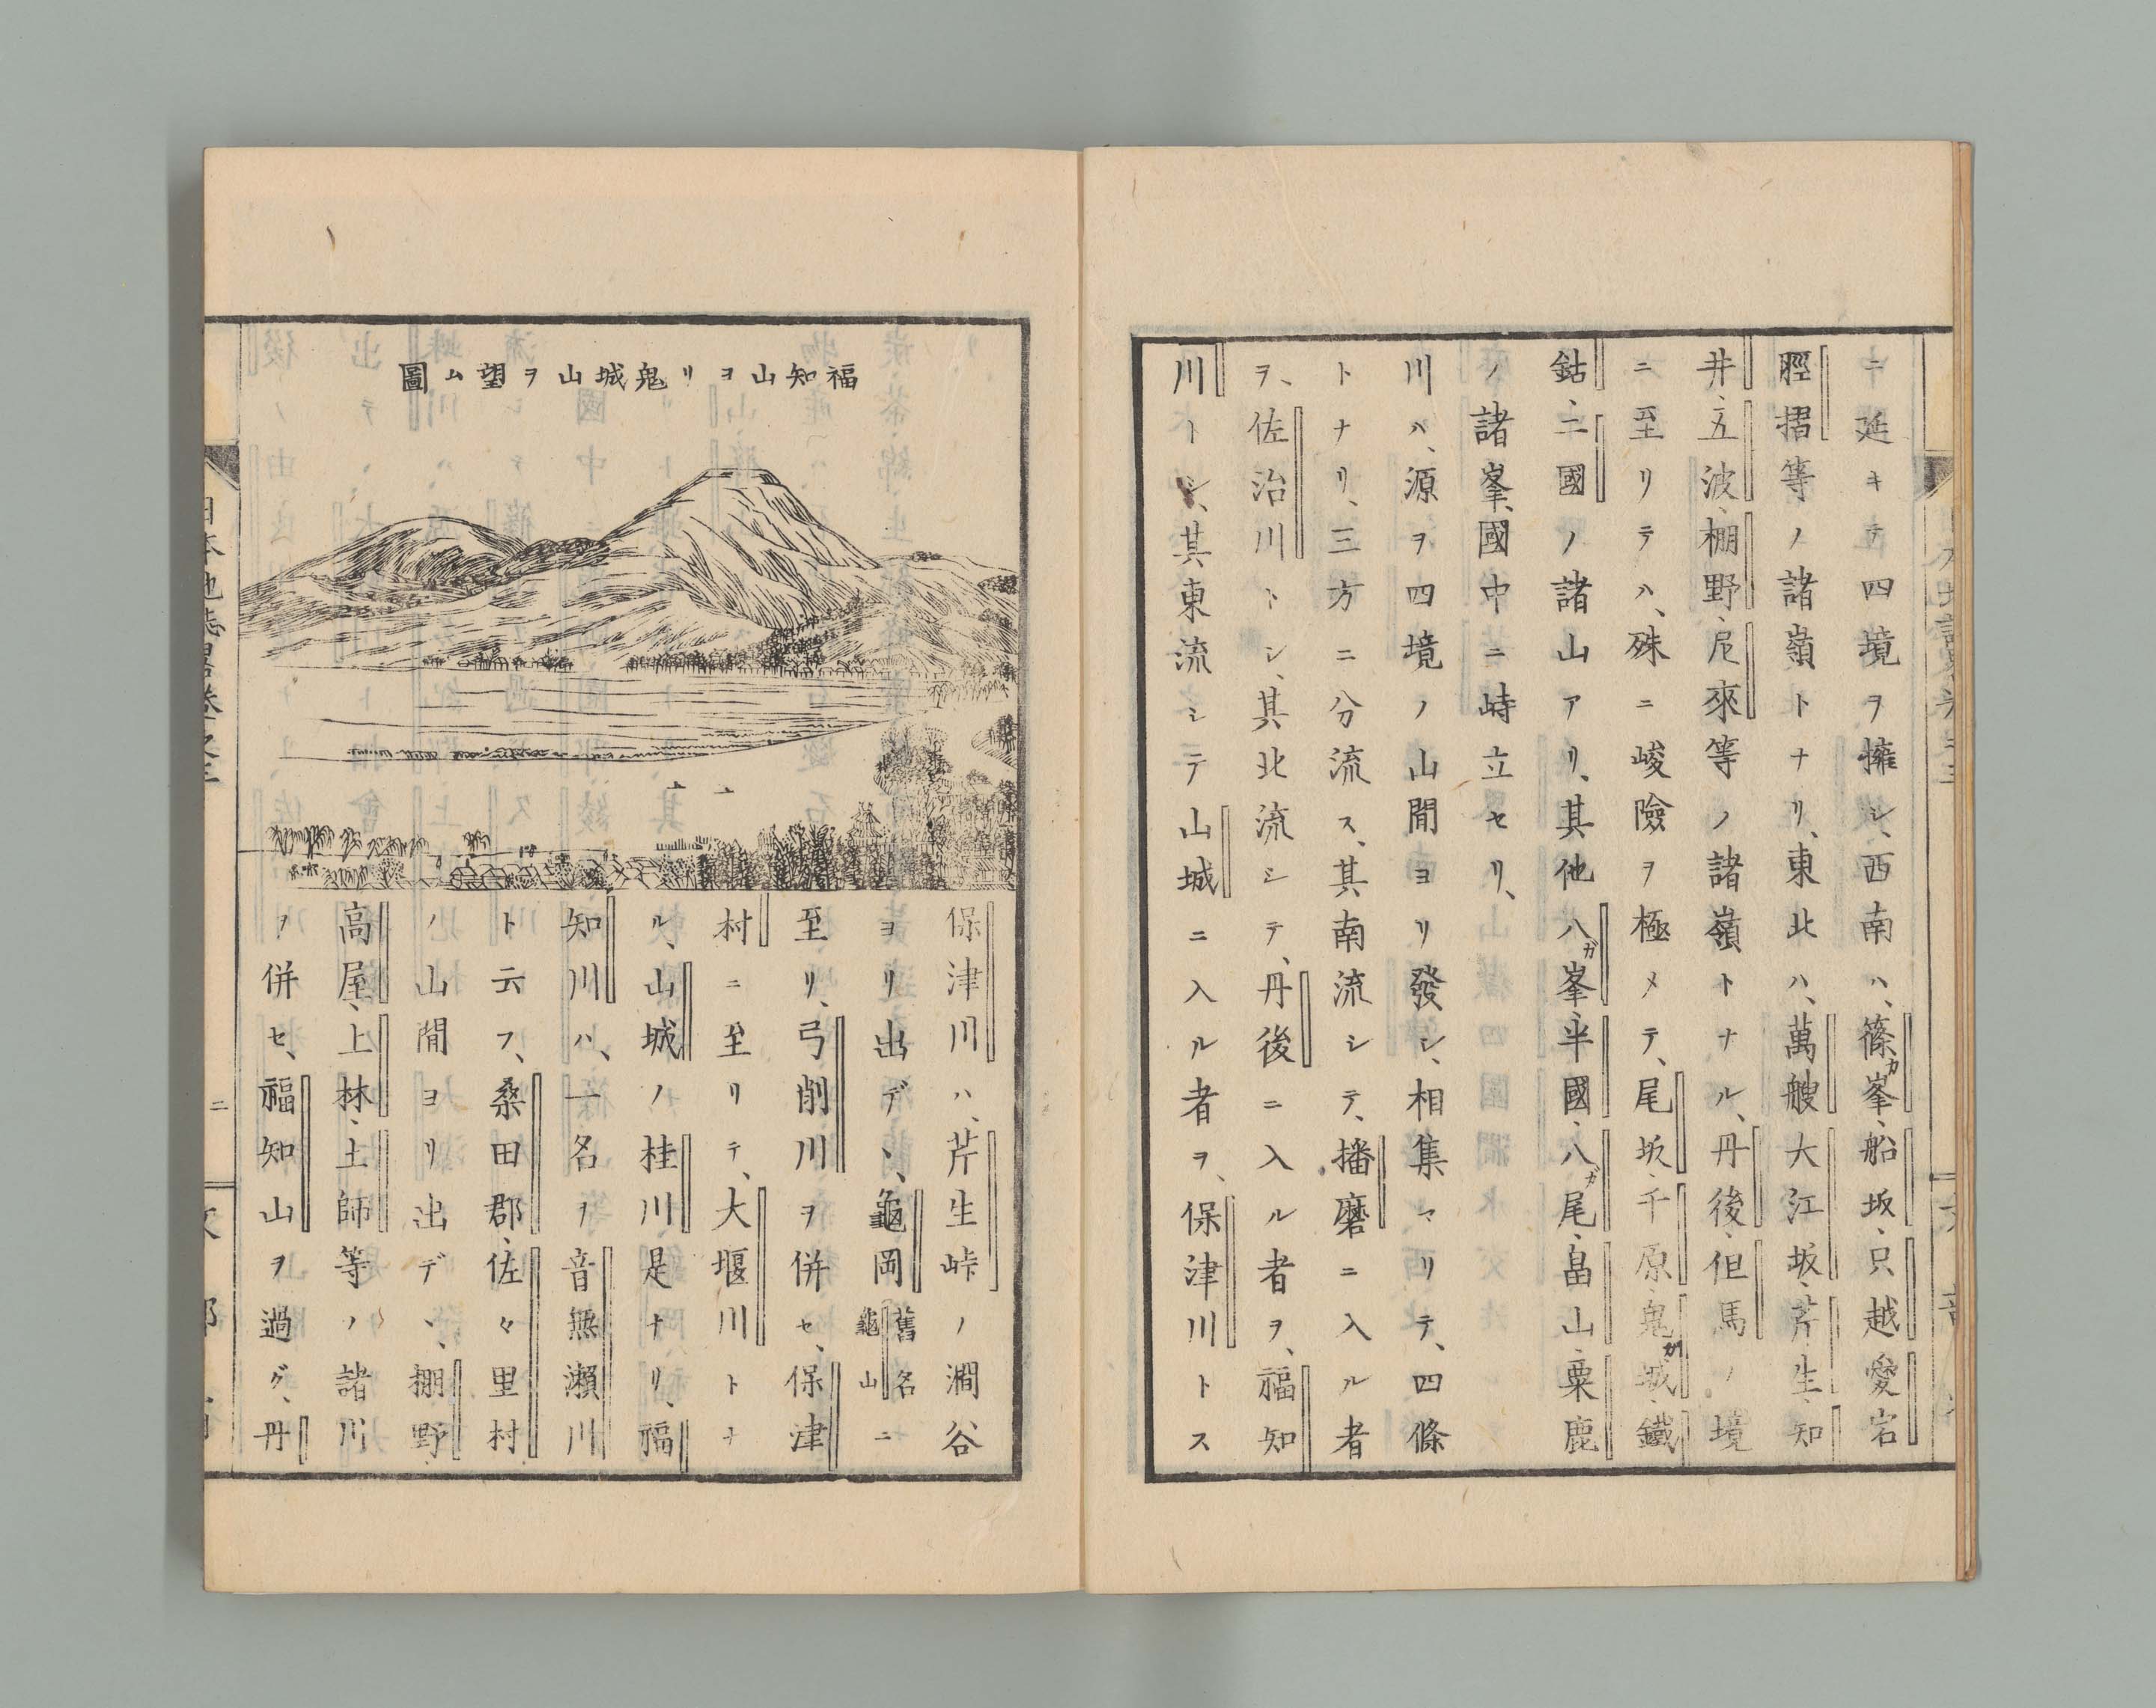 ニ延キテ四境ヲ擁シ、西南ハ、篠カ峯、船坂、只越愛宕
脛摺等ノ諸嶺トナリ、東北ハ、萬艘大江坂、芹生、知
井、五波、棚野、尼來等ノ諸嶺トナル、丹後、但馬ノ境
ニ至リテハ、殊ニ峻險ヲ極メテ、尾坂、千原、鬼カ城、鐵
鈷、二國ノ諸山アリ、其他八ガ峯、半國、八ガ尾、畠山、粟鹿
ノ諸峯、國中ニ峙立セリ、
川ハ、源ヲ四境ノ山間ヨリ發シ、相集マリテ、四條
トナリ、三方ニ分流ス、其南流シテ、播磨ニ入ル者
ヲ、佐治川トシ、其北流シテ、丹後ニ入ル者ヲ、福知
川トシ、其東流シテ山城ニ入ル者ヲ、保津川トス
福知山ヨリ鬼城山ヲ望ム圖
保津川ハ、芹生峠ノ澗谷
ヨリ出デヽ、龜岡舊名龜山ニ
至リ、弓削川ヲ併セ、保津
村ニ至リテ、大堰川トナ
ル、山城ノ桂川是ナリ、福
知川ハ、一名ヲ音無瀬川
ト云フ、桑田郡、佐々里村
ノ山間ヨリ出デヽ、棚野、
高屋、上林、土師等ノ諸川
ヲ併セ、福知山ヲ過グ、丹
日本地誌畧卷之三
二